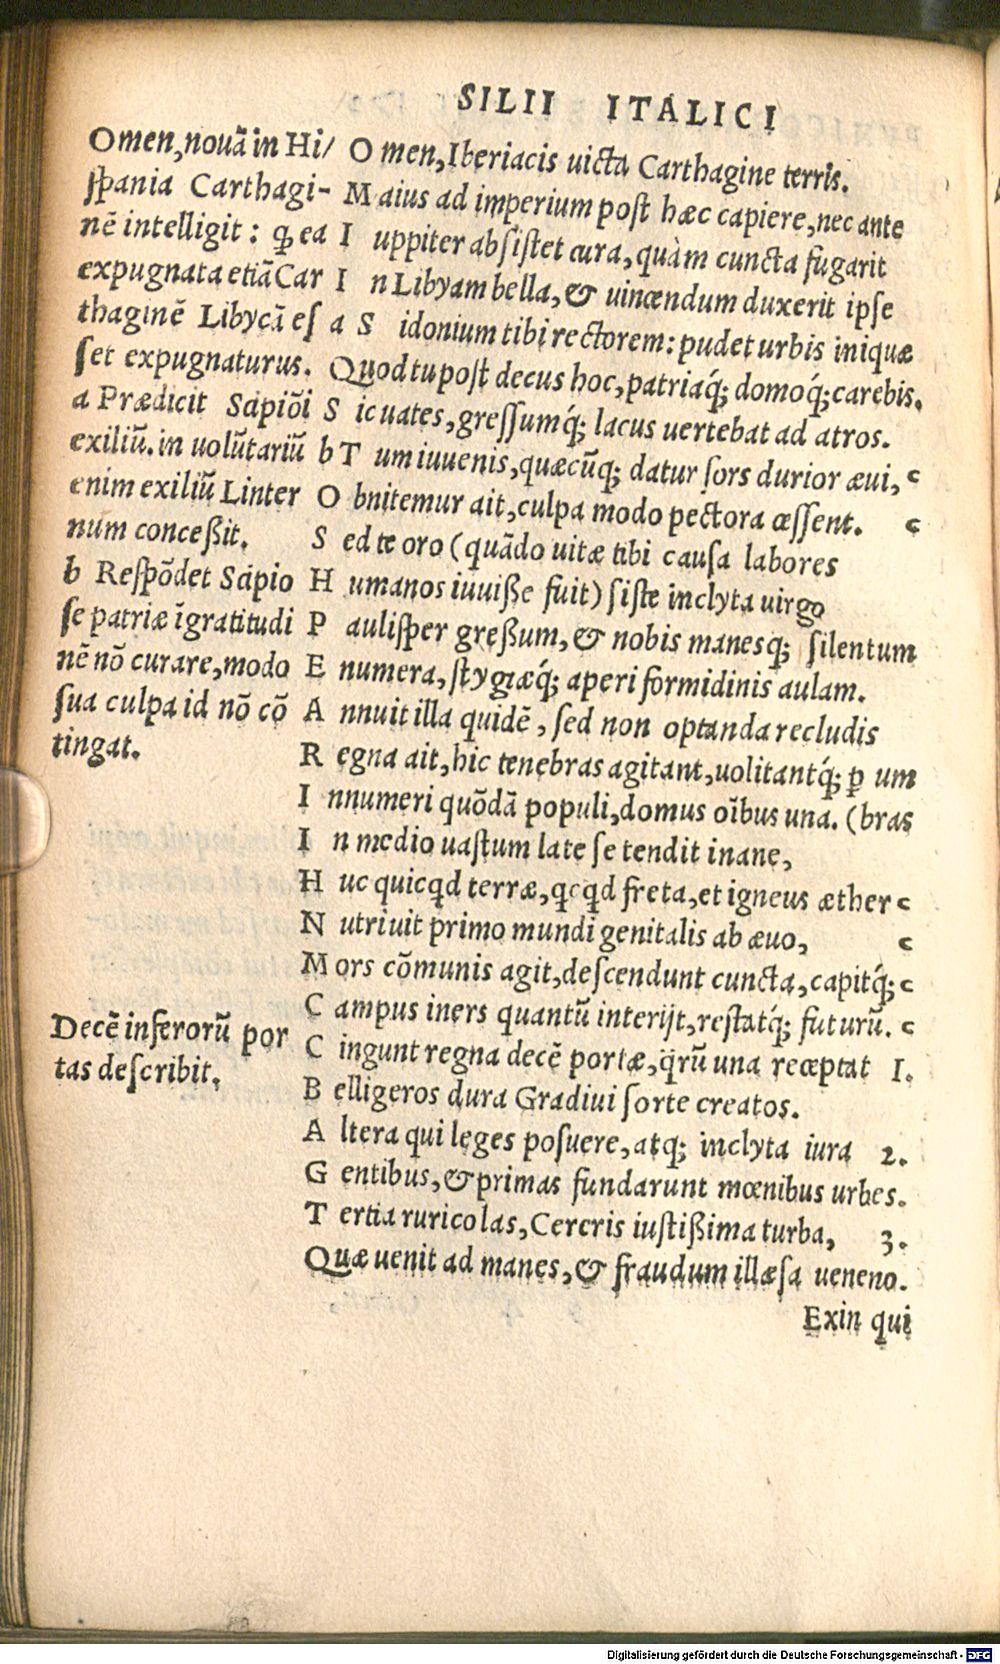 SILII ITALICI
Omen, nouā in Hi/
spania Carthagi-
nē intelligit: ꝗ ea
expugnata etiā Car
thaginē Libycā es
set expugnaturus.
a Prædicit Scipiōi
exiliū. in uolūtariū
enim exiliū Linter
num conceßit.
b Respōdet Scipio
se patriæ īgratitudi
nē nō curare, modo
sua culpa id nō cō
tingat.
Decē inferorū por
tas describit.
O men, Iberiacis uicta Carthagine terris.
M aius ad imperium post hæc capiere, nec ante
I uppiter absistet cura, quàm cuncta fugarit
I n Libyam bella, & uincendum duxerit ipse
a S idonium tibi rectorem: pudet urbis iniquæ
Quod tu post decus hoc, patriaq́; domoq́; carebis.
S ic uates, gressumq́; lacus uertebat ad atros.
b T um iuuenis, quæcūq; datur sors durior æui, c
O bnitemur ait, culpa modo pectora cessent. c
S ed te oro (quādo uitæ tibi causa labores
H umanos iuuiße fuit) siste inclyta uirgo
P aulisper greßum, & nobis manesq; silentum
E numera, stygiæq́; aperi formidinis aulam.
A nnuit illa quidē, sed non optanda recludis
R egna ait, hic tenebras agitant, uolitantq́; ꝑ um
I nnumeri quōdā populi, domus oībus una. (bras
I n medio uastum late se tendit inane,
H uc quicꝗd terræ, ꝗcꝗd freta, et igneus æther c
N utriuit primo mundi genitalis ab æuo, c
M ors cōmunis agit, descendunt cuncta, capitq́; c
C ampus iners quantū interijt, restatq́; futurū. c
C ingunt regna decē portæ, q̄rū una receptat 1.
B elligeros dura Gradiui sorte creatos.
A ltera qui leges posuere, atq; inclyta iura 2.
G entibus, & primas fundarunt mœnibus urbes.
T ertia ruricolas, Cereris iustißima turba, 3.
Quæ uenit ad manes, & fraudum illæsa ueneno.
Exin qui
Digitalisierung gefördert durch die Deutsche Forschungsgemeinschaft - DFG